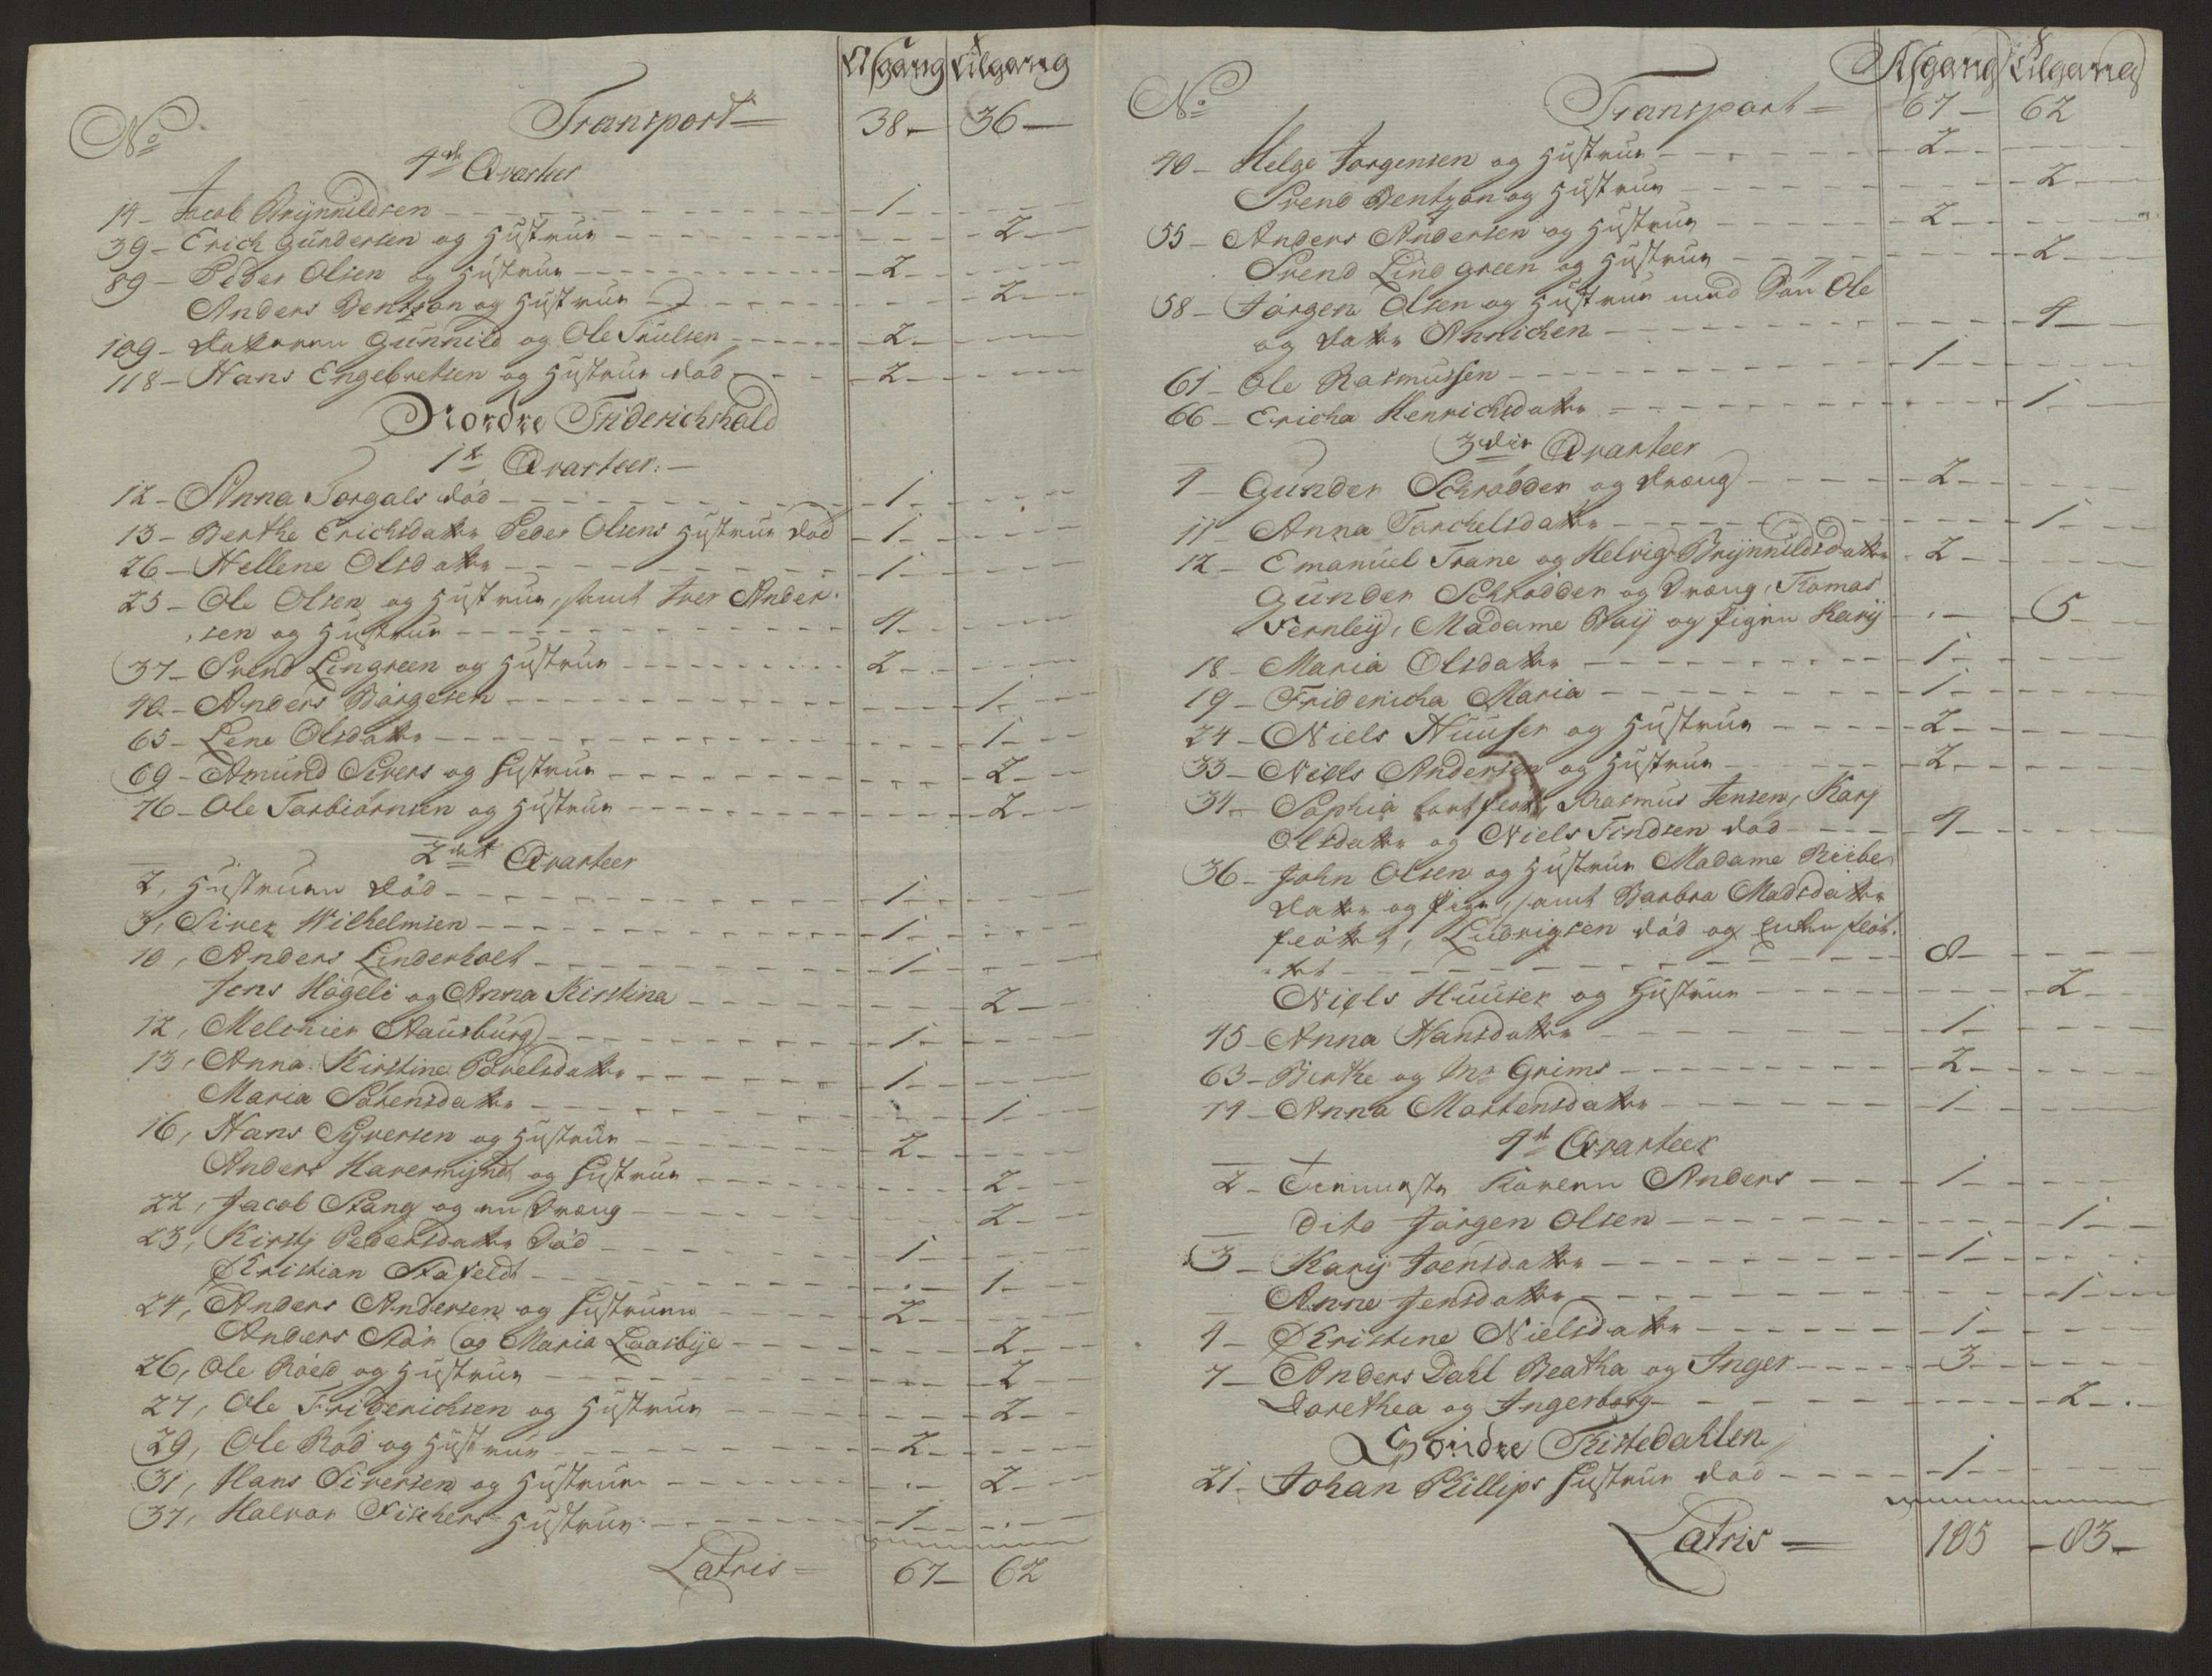 Afgang Tilgang
No Transport 38 - 36 -
4de Qvarter
14 - Jacob Brÿnnildsen - 1 -
39 - Erich Gundersen og Hustrue - 2 -
89 - Peder Olsen og Hustrue - 2 -
Anders Bentzon og Hustrue - 2 -
109 - Datteren Gunnild og Ole Trulsen - 2 -
118 - Hans Engebretsen og Hustrue død - 2 -
Nordre Friderichshald
1te Qvarteer
12 - Anna Torgals død - 1 -
13 - Berthe Erichsdatter Peder Olsens Hustrue død - 1 -
26 - Hellene Olsdatter - 1 -
25 - Ole Olsen og Hustrue, samt Iver Ander-
sen og Hustrue - 4 -
37 - Svend Lingreen og Hustrue - 2 -
40 - Anders Børgesen - 1 -
65 - Lene Olsdatter - 1 -
69 - Amund Sivers og Hustrue - 2 -
76 - Ole Torbiørnsen og Hustrue - 2 -
2det Qvarteer
2, Hustruen død - 1 -
3, Siver Wilhelmsen - 1 -
10, Anders Linderholt - 1 -
Jens Högeli og Anna Kirstina - 2 -
12, Melchier Hausburg - 1 -
13, Anna Kirstine Povelsdatter - 1 -
Maria Sørensdatter - 1 -
16, Hans Syversen og Hustrue - 2 -
Anders Havermÿndt og Hustrue - 2 -
22, Jacob Stang og en Dreng - 2 -
23, Kirstj Pedersdatter Død - 1 -
Christian Stafeldt - 1 -
24, Anders Andersen og Hustruen - 2 -
Anders Stör og Maria Laasbye - 2 -
26, Ole Röed og Hustrue - 2
27, Ole Friderichsen og Hustrue - 2 -
29, Ole Rød og Hustrue - 2 -
31, Hans Siversen og Hustrue - 2 -
37, Halvor Fischers Hustrue - 1 -
Latris - 67 - 62
Afgang Tilgang
No Transport - 67 - 62
40 - Helge Jorgensen og Hustrue - 2 -
Svend Bentzon og Hustrue - 2 -
55 - Anders Andersen og Hustrue - 2 -
Svend Lindgreen og Hustrue - 2 -
58 - Jörgen Olsen og Hustrue med Søn Ole
og Datter Annichen - 4 -
61 - Ole Rasmussen - 1 -
66 - Ericha Henrichsdatter - 1 -
3die Qvarteer
4 - Gunder Schrødder og Dreng - 2 -
11 - Anna Torchelsdatter - 1 -
12 - Emanuel Trane og Helvig Brÿnnildsdatter - 2 -
Gunder Schrødder og Dreng, Thomas
Fernley, Madame Waÿ og Pigen Karÿ - 5 -
18 - Maria Olsdatter - 1 -
19 - Friderica Maria - 1 -
24 - Niels Huuser og Hustrue - 2 -
33 - Niels Andersen og Hustrue - 2 -
34 - Sophia bortfløt, Rasmus Jensen, Karj
Olsdatter og Niels Findsen død - 4 -
36 - John Olsen og Hustrue Madame Riibe
Datter og Pige, samt Barbra Madsdatter
fløttet, Ludvigsen død og Enken fløt-
tet - 8 -
Niels Huuser og Hustrue - 2 -
45 - Anna Hansdatter - 1 -
63 - Berthe og Mr Grims - 2 -
74 - Anna Mortensdatter - 1 -
4de Qvarteer
2 - Tienneste Karenn Anders - 1 -
Dito Jörgen Olsen - 1 -
3 - Karÿ Joensdatter - 1 -
Anne Jensdatter - 1 -
4 - Christine Nielsdatter - 1 -
7 - Anders Dahl Beatha og Inger - 3 -
Dorethea og Ingerborg - 2 -
Søndre Tistedahlen
21 - Johan Phillips Hustrue død - 1 -
Latris - 105 - 83 -